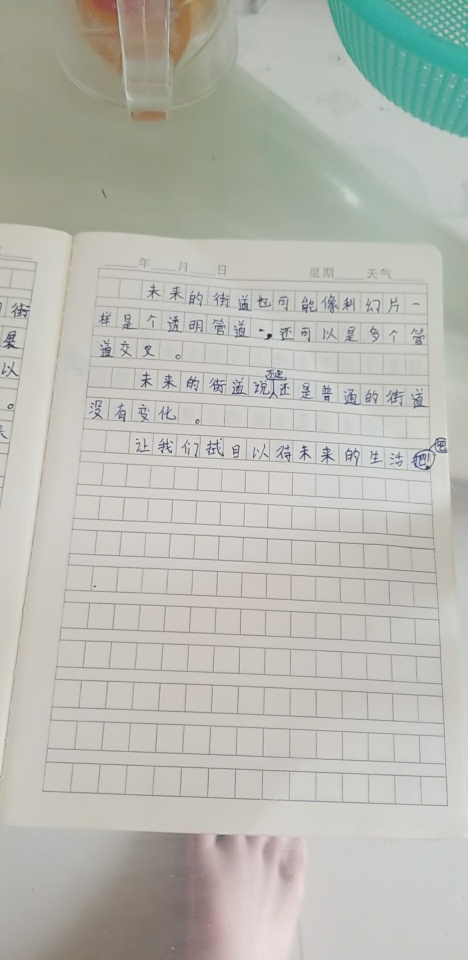 年 月 日 星期 天气
未来的街道也可能像科幻片一
样是个透明管道,还可以是多个管
道交叉。
未来的街道说还是还是普通的街道
没有变化。
让我们拭目以待未来的生活吧!
街
果
以
。